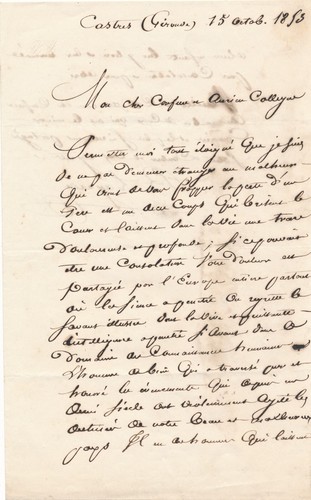 Castres (Gironde) 15 octob. 1853
Mon cher Confrere et Ancien Collegue
Permettez moi tout éloigné que je suis
de ne pas demeurer etranger au malheur
qui vient de vous frapper la perte d'un
Pere est un de ces coups qui brisent le
Coeur et laissent dans la vie une trace
Douloureuse et profonde; si ce pouvait
etre une consolation
partagée par l'Europe entiere partout
où la Science a penetré On regrette le
Savant illustre dont la vive et puissante
intelligence a penetré si avant dans le
Domaine des Connaissances humaines
l'homme de bien qui a traversé pur et
honoré les évènements qui depuis un
demi siècle ont violemment agité les
de notre beau et malheureux
pays Il est des hommes qui laissent